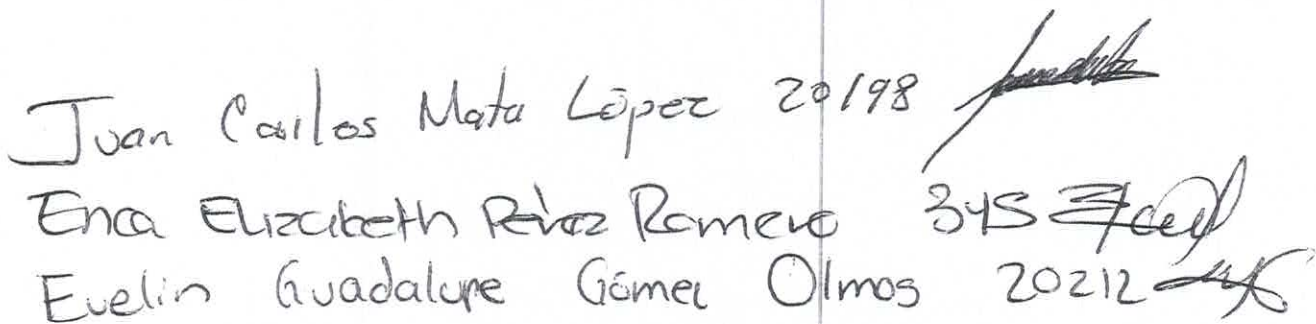 Juan Carlos Mata López 20198
Erica Elizabeth Pérez Romero 345
Evelin Guadalupe Gómez Olmos 20212